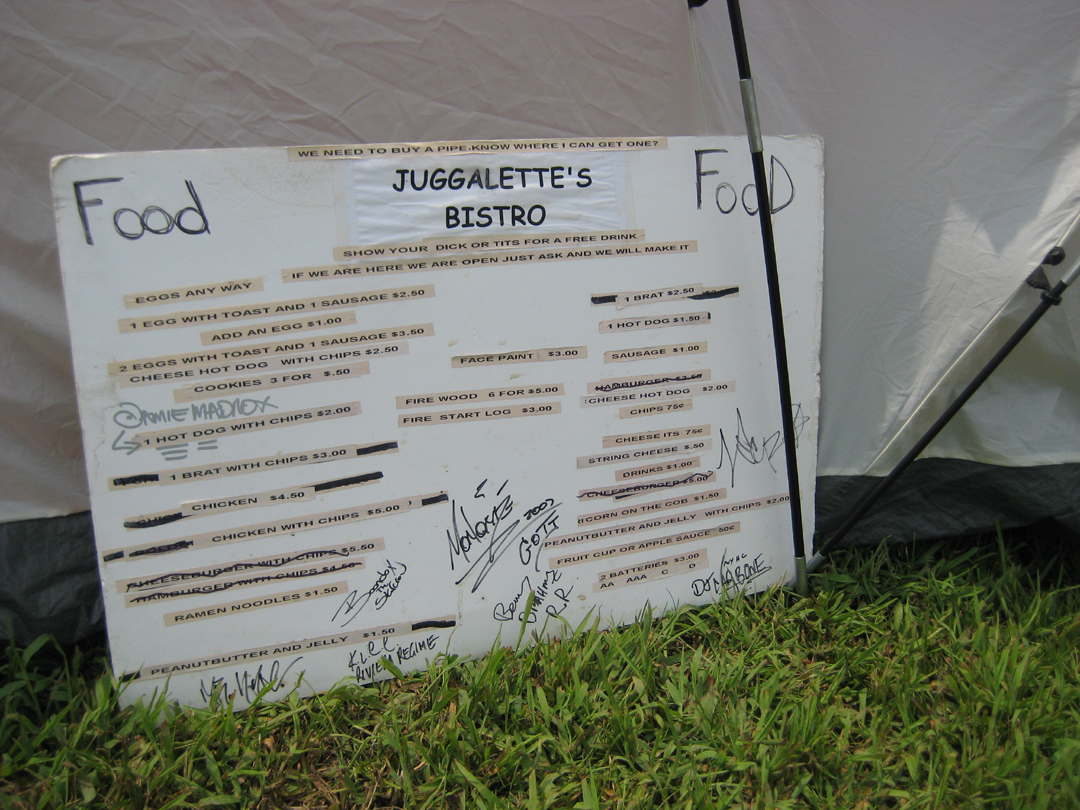 WE NEED TO BUY A PIPE.KNOW WHERE I CAN GET ONE?
Food
JUGGALETTE'S
BISTRO
FooD
SHOW YOUR DICK OR TITS FOR A FREE DRINK
IF WE ARE HERE WE ARE OPEN JUST ASK AND WE WILL MAKE IT
EGGS ANY WAY
1 EGG WITH TOAST AND 1 SAUSAGE $2.50
ADD AN EGG $1.00
2 EGGS WITH TOAST AND 1 SAUSAGE $3.50
CHEESE HOT DOG WITH CHIPS $2.50
COOKIES 3 FOR $.50
1 HOT DOG WITH CHIPS $2.00
1 BRAT WITH CHIPS $3.00
CHICKEN $4.50
CHICKEN WITH CHIPS $5.00
CHEESEBURGER WITH CHIPS $5.50
HAMBURGER WITH CHIPS $4.50
RAMEN NOODLES $1.50
PEANUTBUTTER AND JELLY $1.50
FACE PAINT $3.00
FIRE WOOD 6 FOR $5.00
FIRE START LOG $3.00
1 BRAT $2.50
1 HOT DOG $1.50
SAUSAGE $1.00
HAMBURGER $3.50
CHEESE HOT DOG $2.00
CHIPS 75¢
CHEESE ITS 75¢
STRING CHEESE $.50
DRINKS $1.00
CHEESEBURGER $5.00
CORN ON THE COB $1.50
PEANUTBUTTER AND JELLY WITH CHIPS $2.00
FRUIT CUP OR APPLE SAUCE 50¢
2 BATTERIES $3.00
AA AAA C D
RIVIEW REGIME